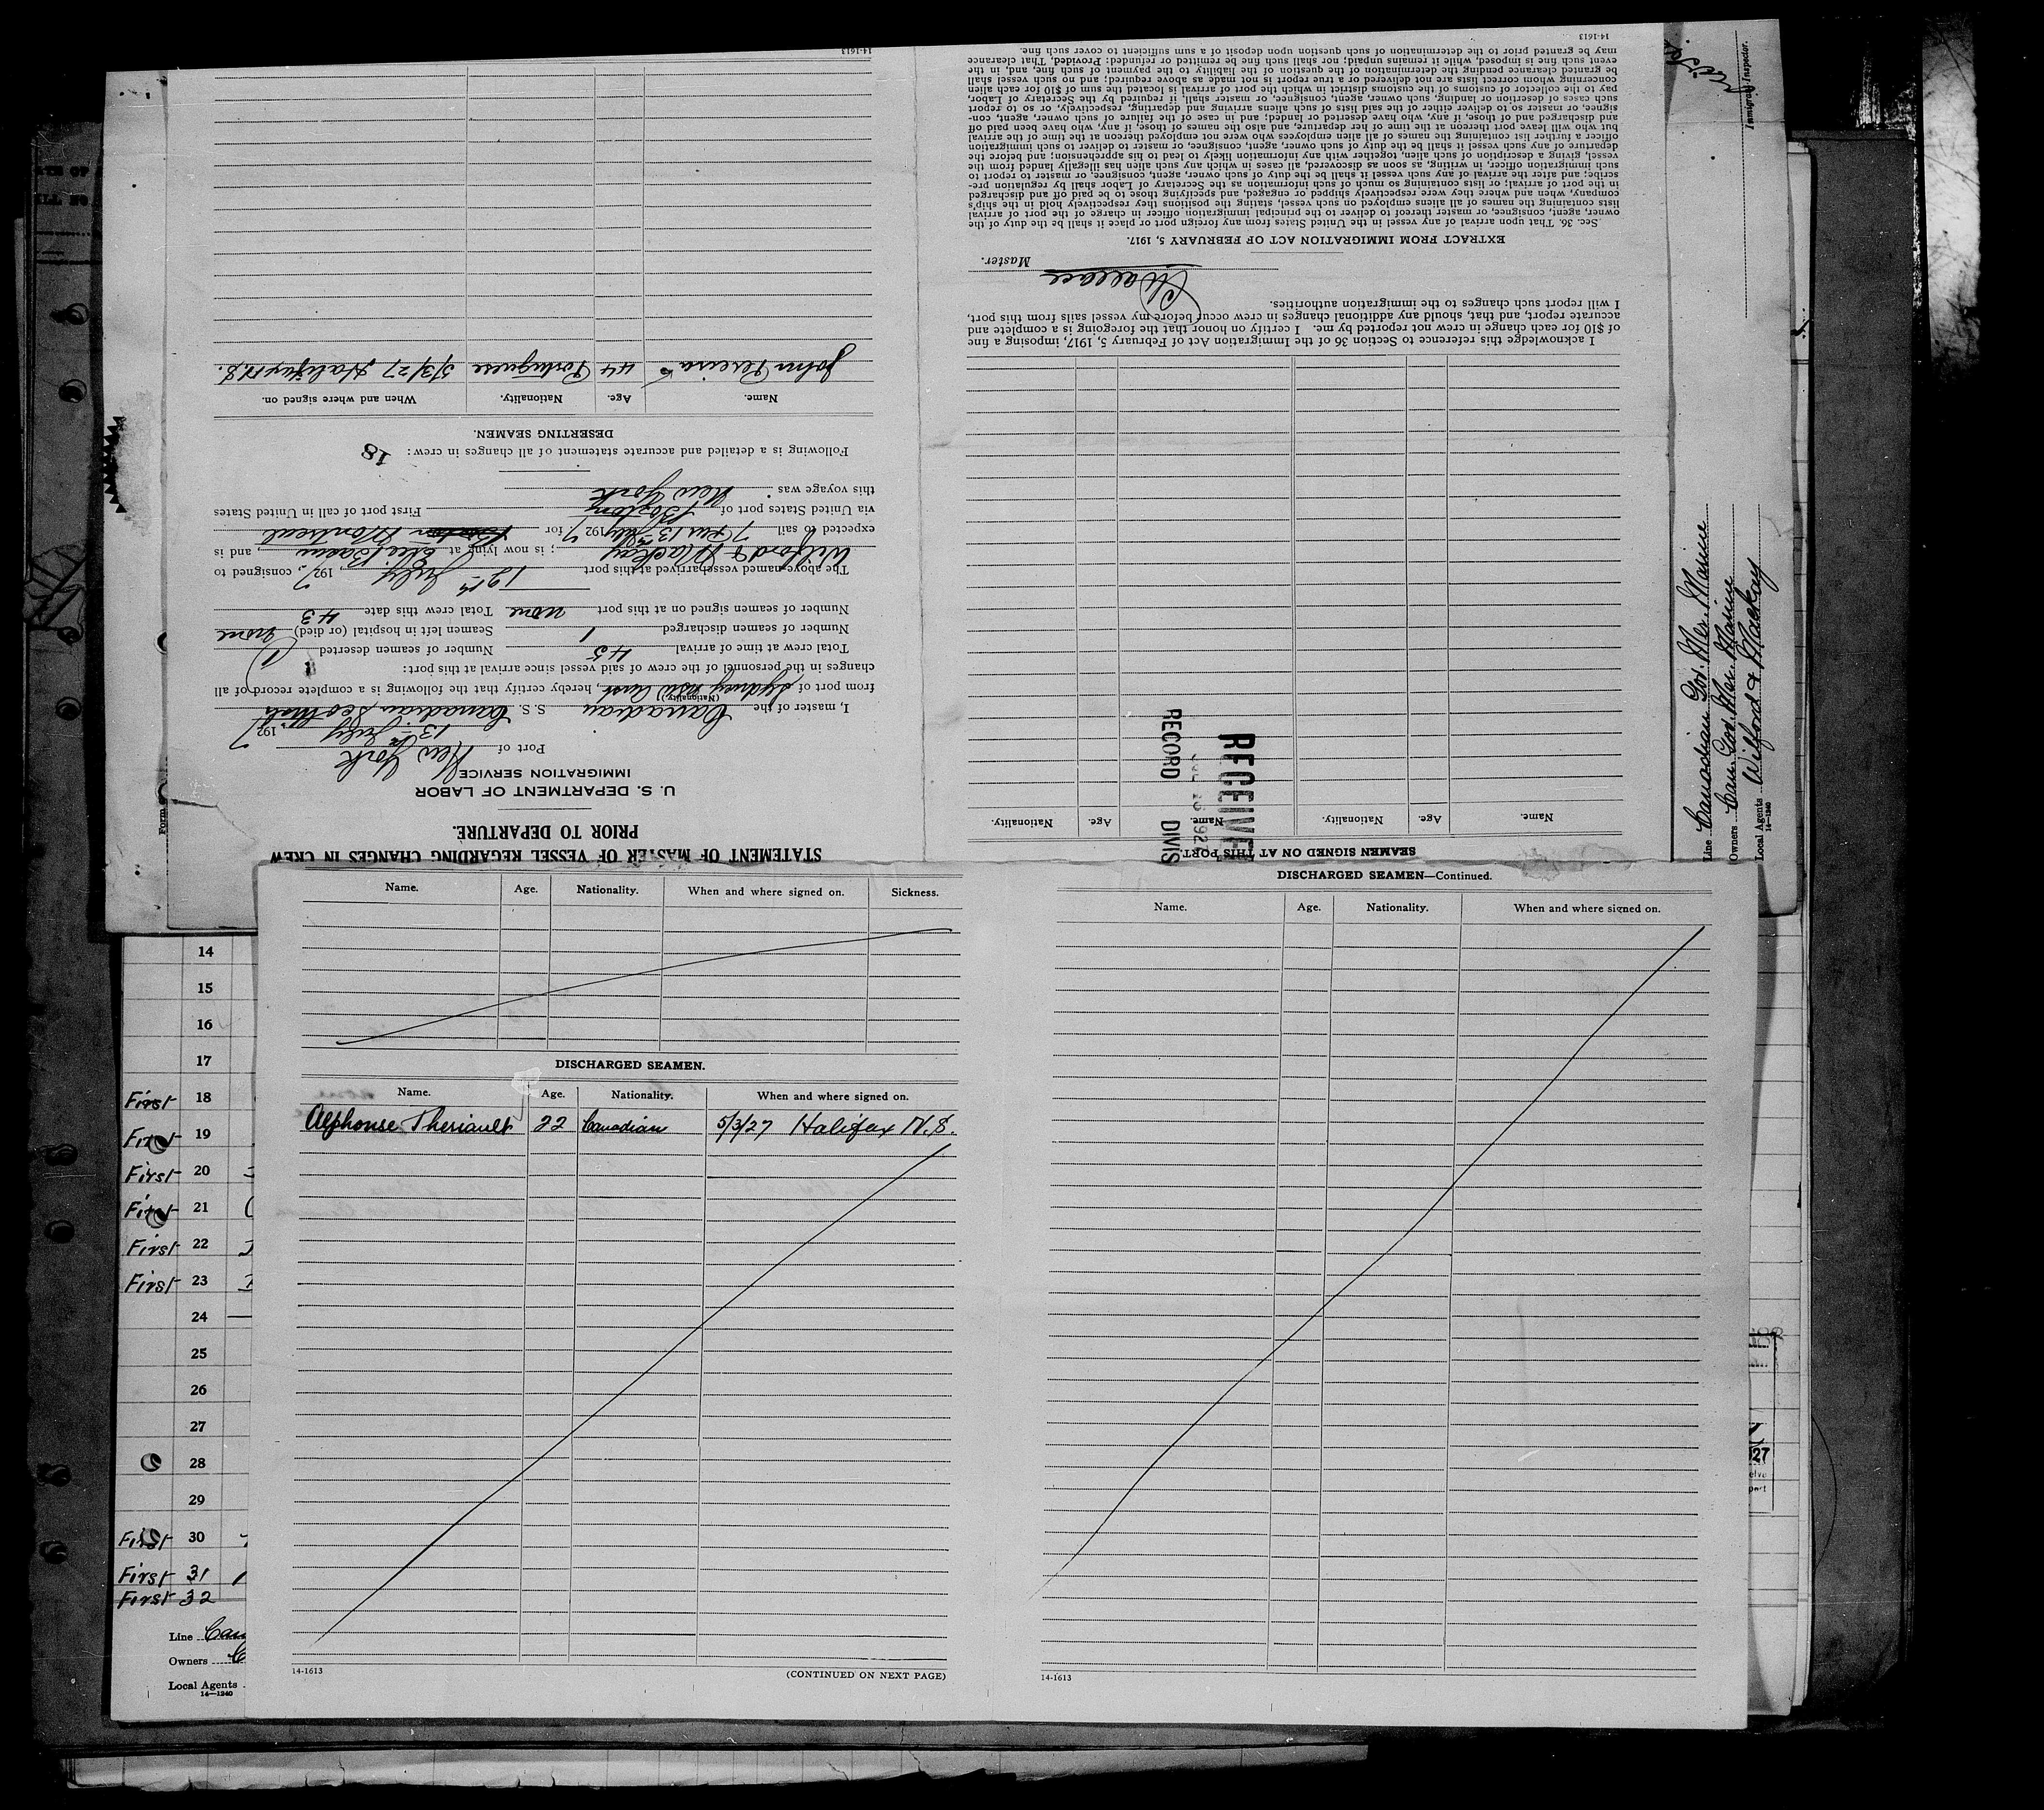 STATEMENT OF MASTER OF VESSEL REGARDING CHANGES IN CREW
PRIOR TO DEPARTURE.
U. S. DEPARTMENT OF LABOR
IMMIGRATION SERVICE
Port of New York
13th July, 1927
I, master of the Canadian S. S. Canadian Scottish
(Nationality)
from port of Sydney NSW Aust, hereby certify that the following is a complete record of all
changes in the personnel of the crew of said vessel since arrival at this port:
Total crew at time of arrival 45 Number of seamen deserted 1
Number of seamen discharged 1 Seamen left in hospital (or died) none
Number of seamen signed on at this port none Total crew this date 43
The above-named vessel arrived at this port 12th July, 1927, consigned to
Wilford & Mackay; is now lying at Erie Basin, and is
expected to sail 13th July 1927 for Montreal
via United States port of Boston First port of call in United States
this voyage was New York
Following is a detailed and accurate statement of all changes in crew: 18
DESERTING SEAMEN.
Name. Age. Nationality. When and where signed on.
John Pereira 44 Portuguese 5/3/27 Halifax N.S.
14-1613
SEAMEN SIGNED ON AT THIS PORT
Name. Age. Nationality. Name. Age. Nationality.
RECEIVED
RECORD DIVIS
I acknowledge this reference to Section 36 of the Immigration Act of February 5, 1917, imposing a fine
of $10 for each change in crew not reported by me. I certify on honor that the foregoing is a complete and
accurate report, and that, should any additional changes in crew occur before my vessel sails from this port,
I will report such changes to the immigration authorities.
Wallace Master.
EXTRACT FROM IMMIGRATION ACT OF FEBRUARY 5, 1917.
Sec. 36. That upon arrival of any vessel in the United States from any foreign port or place it shall be the duty of the
owner, agent, consignee, or master thereof to deliver to the principal immigration officer in charge of the port of arrival
lists containing the names of all aliens employed on such vessel, stating the positions they respectively hold in the ship's
company, when and where they were respectively shipped or engaged, and specifying those to be paid off and discharged
in the port of arrival; or lists containing so much of such information as the Secretary of Labor shall by regulation pre-
scribe; and after the arrival of any such vessel it shall be the duty of such owner, agent, consignee, or master to report to
such immigration officer, in writing, as soon as discovered, all cases in which any such alien has illegally landed from the
vessel, giving a description of such alien, together with any information likely to lead to his apprehension; and before the
departure of any such vessel it shall be the duty of such owner, agent, consignee, or master to deliver to such immigration
officer a further list containing the names of all alien employees who were not employed thereon at the time of the arrival
but who will leave port thereon at the time of her departure, and also the names of those, if any, who have been paid off
and discharged and of those, if any, who have deserted or landed; and in case of the failure of such owner, agent, con-
signee, or master so to deliver either of the said lists of such aliens arriving and departing, respectively, or so to report
such cases of desertion or landing, such owner, agent, consignee, or master shall, if required by the Secretary of Labor,
pay to the collector of customs of the customs district in which the port of arrival is located the sum of $10 for each alien
concerning whom correct lists are not delivered or a true report is not made as above required; and no such vessel shall
be granted clearance pending the determination of the question of the liability to the payment of such fine, and, in the
event such fine is imposed, while it remains unpaid; nor shall such fine be remitted or refunded: Provided, That clearance
may be granted prior to the determination of such question upon deposit of a sum sufficient to cover such fine.
14-1613
Line Canadian Gov. Mer. Marine
Owners Can. Gov. Mer. Marine
Local Agents Wilford & Mackay
14-1240
Immigrant Inspector.
Form
Name. Age. Nationality. When and where signed on. Sickness.
DISCHARGED SEAMEN.
Name. Age. Nationality. When and where signed on.
Alphonse Theriault 22 Canadian 5/3/27 Halifax N.S.
14-1613
(CONTINUED ON NEXT PAGE)
DISCHARGED SEAMEN—Continued.
Name. Age. Nationality. When and where signed on.
14-1613
14
15
16
17
First 18
First 19
First 20
First 21
First 22
First 23
24
25
26
27
28
29
First 30
First 31
First 32
Line Can
Owners C
Local Agents
14-1240